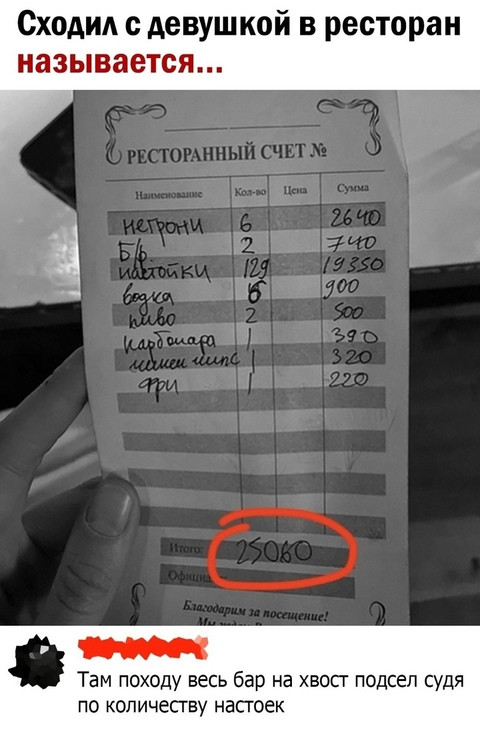 Сходил с девушкой в ресторан
называется...
РЕСТОРАННЫЙ СЧЕТ №
Наименование Кол-во Цена Сумма
негрони 6 2640
Б/р 2 740
настойки 129 19350
водка 6 900
пиво 2 500
Карбонара 1 390
чипс 1 320
фри 1 220
Итого: 25060
Благодарим за посещение!
Там походу весь бар на хвост подсел судя
по количеству настоек